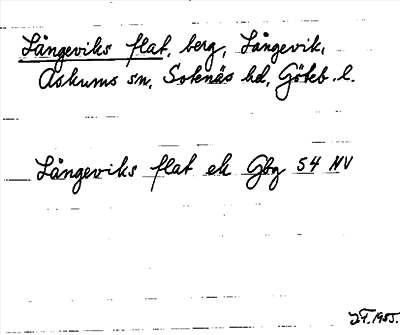 Långeviks flat, berg, Långevik,
Askums sn, Sotenäs hd, Göteb. l.
Långeviks flat ek Gbg 54 NV
J.F. 1955.